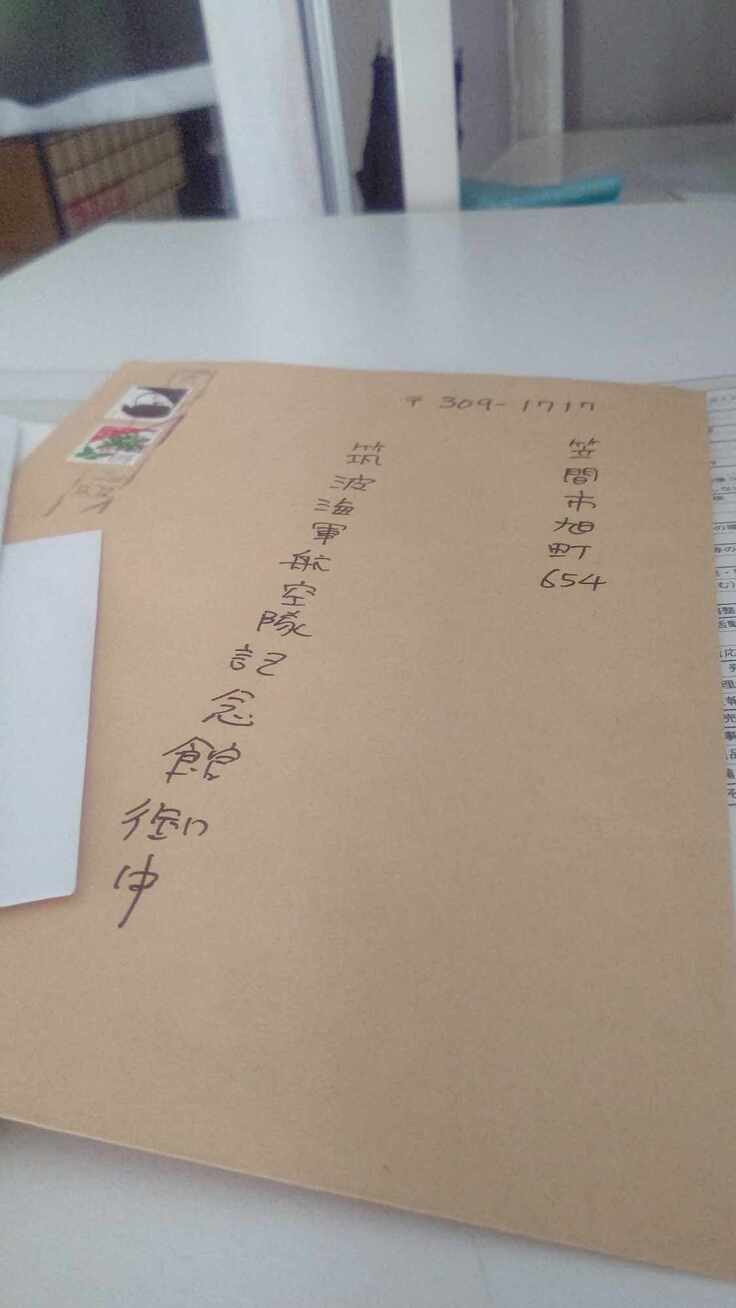 〒309-1717
笠間市旭町654
筑波海軍航空隊記念館御中